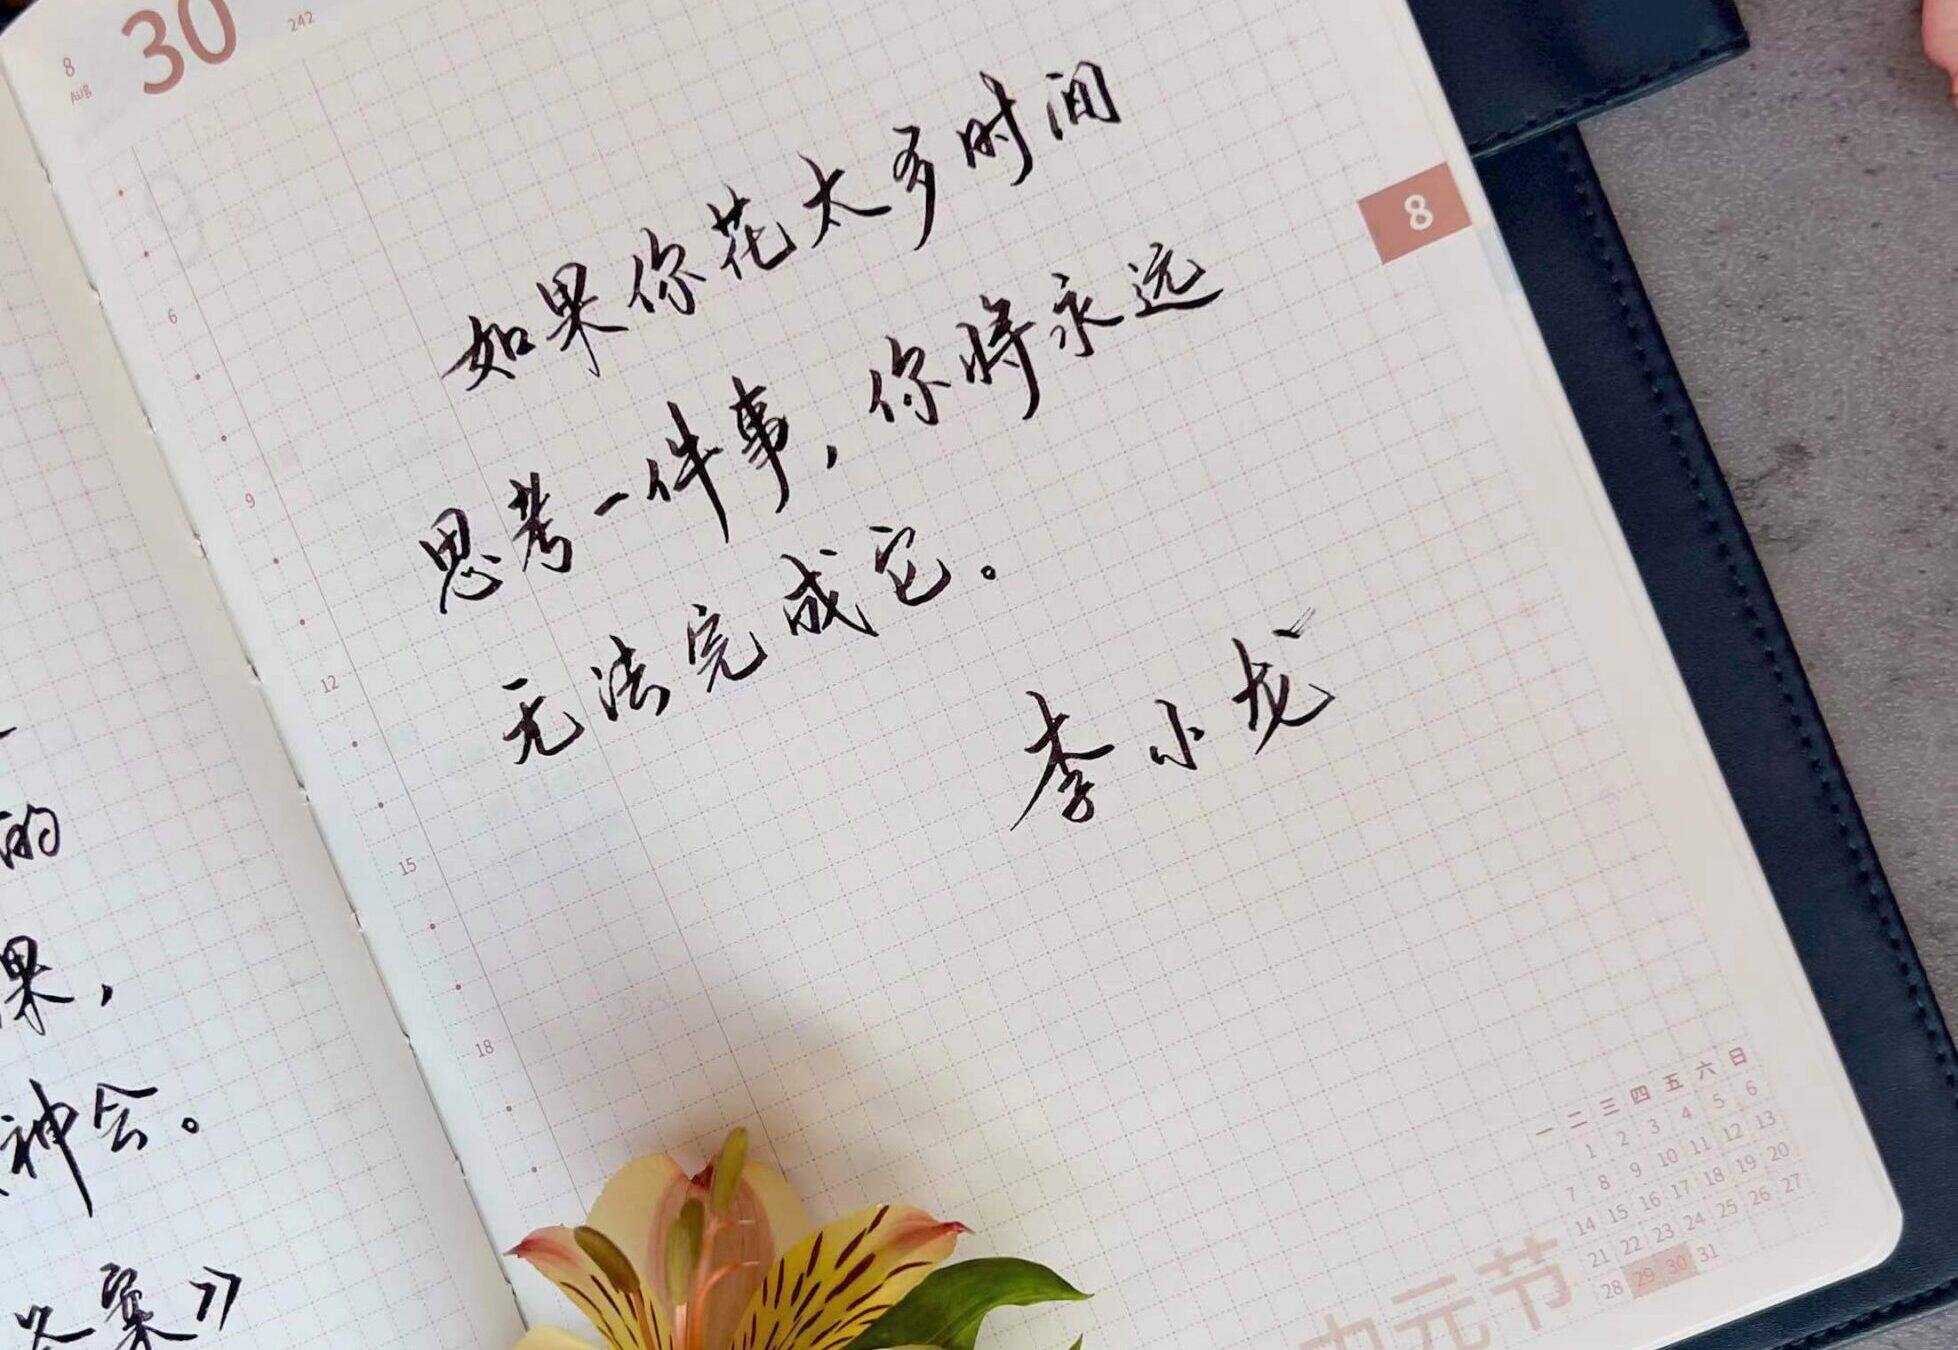 8
Aug
30
242
如果你花太多时间
思考一件事，你将永远
无法完成它。
李小龙
8
6
9
12
15
18
的
果，
神会。
答案》
一 二 三 四 五 六 日
1 2 3 4 5 6
7 8 9 10 11 12 13
14 15 16 17 18 19 20
21 22 23 24 25 26 27
28 29 30 31
中元节